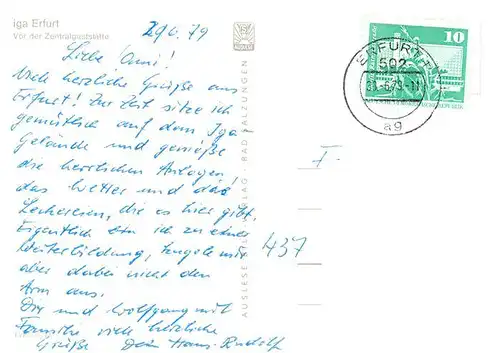 iga Erfurt
Vor der Zentralgaststätte
29.6.79
Liebe Omi!
Viele herzliche Grüße aus
Erfurt! Zur Zeit sitze ich
gemütlich auf dem Iga
Gelände und genieße
die herrlichen Anlagen,
das Wetter und die
Leckereien, die es hier gibt.
Eigentlich bin ich zu einer
Weiterbildung, kugele mir
aber dabei nicht den
Arm aus.
Dir und Wolfgang mit
Familie viele herzliche
Grüße Dein Hans-Rudolf
AUSLESE VERLAG · BAD SALZUNGEN
F.
437
10
ERFURT
502
ag